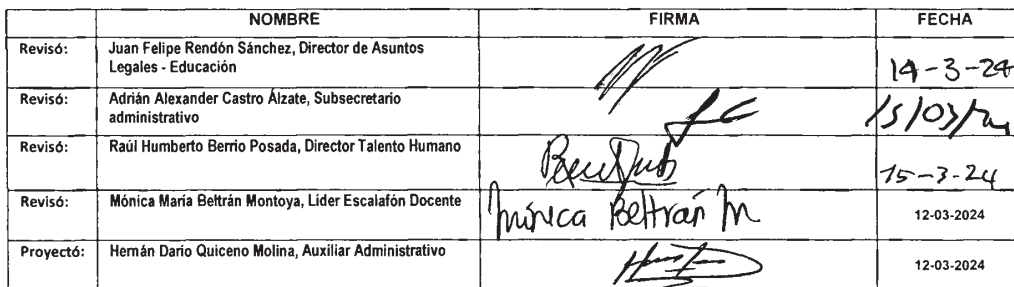 NOMBRE FIRMA FECHA
Revisó: Juan Felipe Rendón Sánchez, Director de Asuntos
Legales - Educación 14-3-24
Revisó: Adrián Alexander Castro Álzate, Subsecretario
administrativo 15/03/24
Revisó: Raúl Humberto Berrio Posada, Director Talento Humano
15-3-24
Revisó: Mónica María Beltrán Montoya, Líder Escalafón Docente Mónica Beltrán M 12-03-2024
Proyectó: Hernán Darío Quiceno Molina, Auxiliar Administrativo 12-03-2024